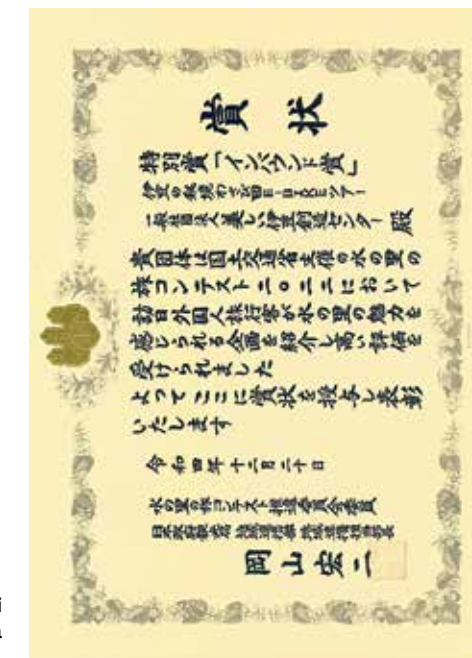 賞状
特別賞「インバウンド賞」
伊豆の秘境わさび田E-BIKEツアー
一般社団法人美しい伊豆創造センター 殿
貴団体は国土交通省主催の水の里の
旅コンテスト二〇二二において
訪日外国人旅行客が水の里の魅力を
感じられる企画を紹介し高い評価を
受けられました
よってここに賞状を授与し表彰
いたします
令和四年十二月二十日
水の里の旅コンテスト推進委員会委員
日本政府観光局
岡山宏二